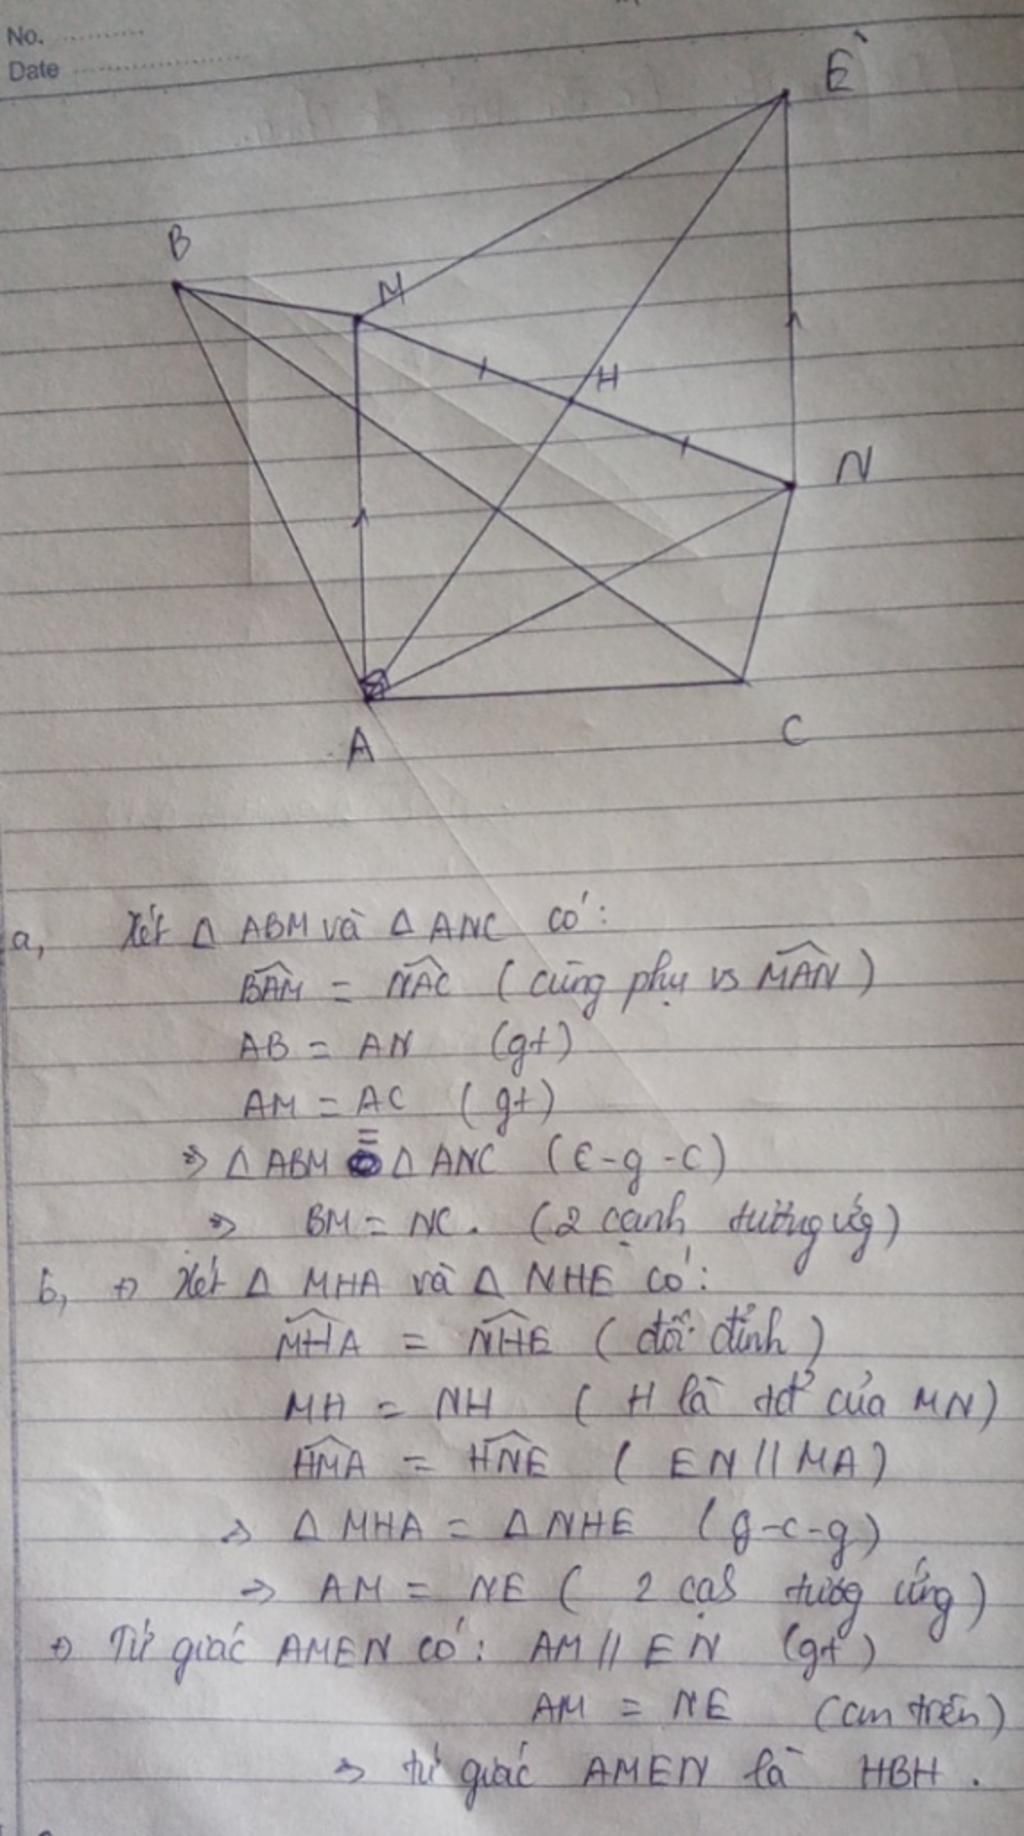 No.
Date
E
B
M
H
N
A
C
a, Xét Δ ABM và Δ ANC có:
BAM = NAC (cùng phụ vs MAN)
AB = AN (gt)
AM = AC (gt)
=> Δ ABM = Δ ANC (c-g-c)
=> BM = NC. (2 cạnh tương ứg)
b, +) Xét Δ MHA và Δ NHE có:
MHA = NHE (đối đỉnh)
MH = NH (H là tđ của MN)
HMA = HNE (EN // MA)
=> Δ MHA = Δ NHE (g-c-g)
=> AM = NE (2 cạh tươg ứng)
+) Tứ giác AMEN có: AM // EN (gt)
AM = NE (cm trên)
=> tứ giác AMEN là HBH.